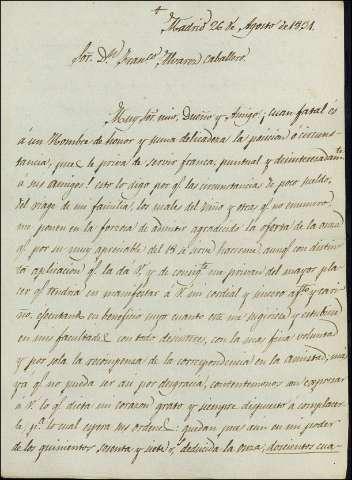 Madrid 26 de Agosto de 1831.
Sor. Dn. Franco. Alvarez Caballero
Muy Sor. mio, Dueño y Amigo; cuan fatal es
á un Hombre de honor y suma delicadeza la posicion ó circuns-
tancia, que le priva de servir franca, puntual y desinteresadamte.
á sus amigos! esto lo digo por qe. las circunstancias de poco sueldo,
del viage de mi familia, los males del niño y otras qe. no enumero
me ponen en la forzosa de admitir agradecido la oferta de la onza
qe. por su muy apreciable del 13 se sirve hacerme, aunqe. con distin-
ta aplicacion qe. la da V. y de consigte. me privan del mayor pla-
cer qe. tendria en manifestar á V. mi cordial y sincero afto. y cari-
ño, ejecutando en beneficio suyo cuanto este me sugiriera y estubiera
en mis facultades con todo desinteres, con la mas fina voluntad
y por sola la recompensa de la correspondencia en la amistad, mas
ya qe. no pueda ser asi por desgracia, contentemonos con expresar
á V. lo qe. dicta mi corazon grato y siempre dispuesto á complacer-
le, pa. lo cual espera sus ordenes: quedan pues aun en mi poder
de los quinientos sesenta y siete rs. deducida la onza, doscientos cua-